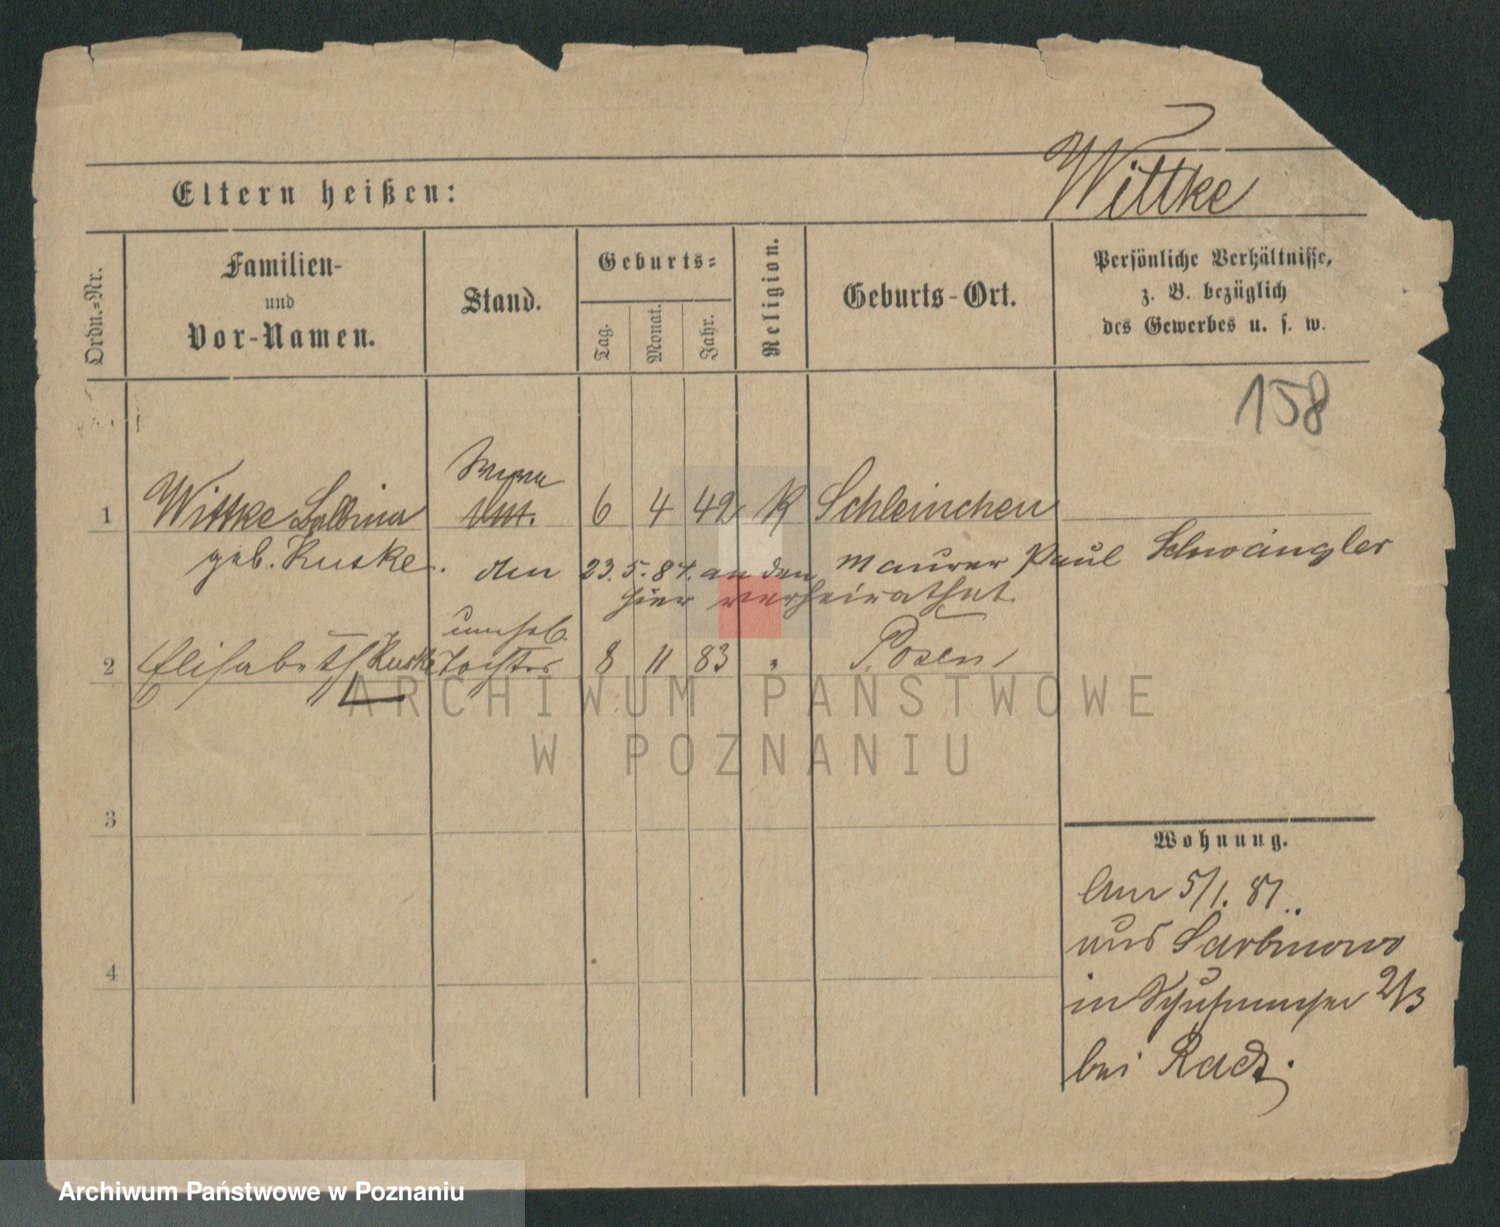 Wittke
Eltern heißen:
Ordn.-Nr.
Familien-
und
Vor-Namen.
Stand.
Geburts-
Tag.
Monat.
Jahr.
Religion.
Geburts-Ort.
Persönliche Verhältnisse,
z. B. bezüglich
des Gewerbes u. s. w.
158
1 Wittke Balbina 6 4 42 K Schleinchen
geb. Kuske. den 23. 5. 87. an den Maurer Paul Schwängler
hier verheirathet
unehel.
2 Elisabeth Kuske Tochter 8 11 83 " Posen
3
4
Wohnung.
Am 5/1. 87.
aus Sarbinowo
in Schuhmacher 2/3
bei Radt.
ARCHIWUM PAŃSTWOWE
W POZNANIU
Archiwum Państwowe w Poznaniu